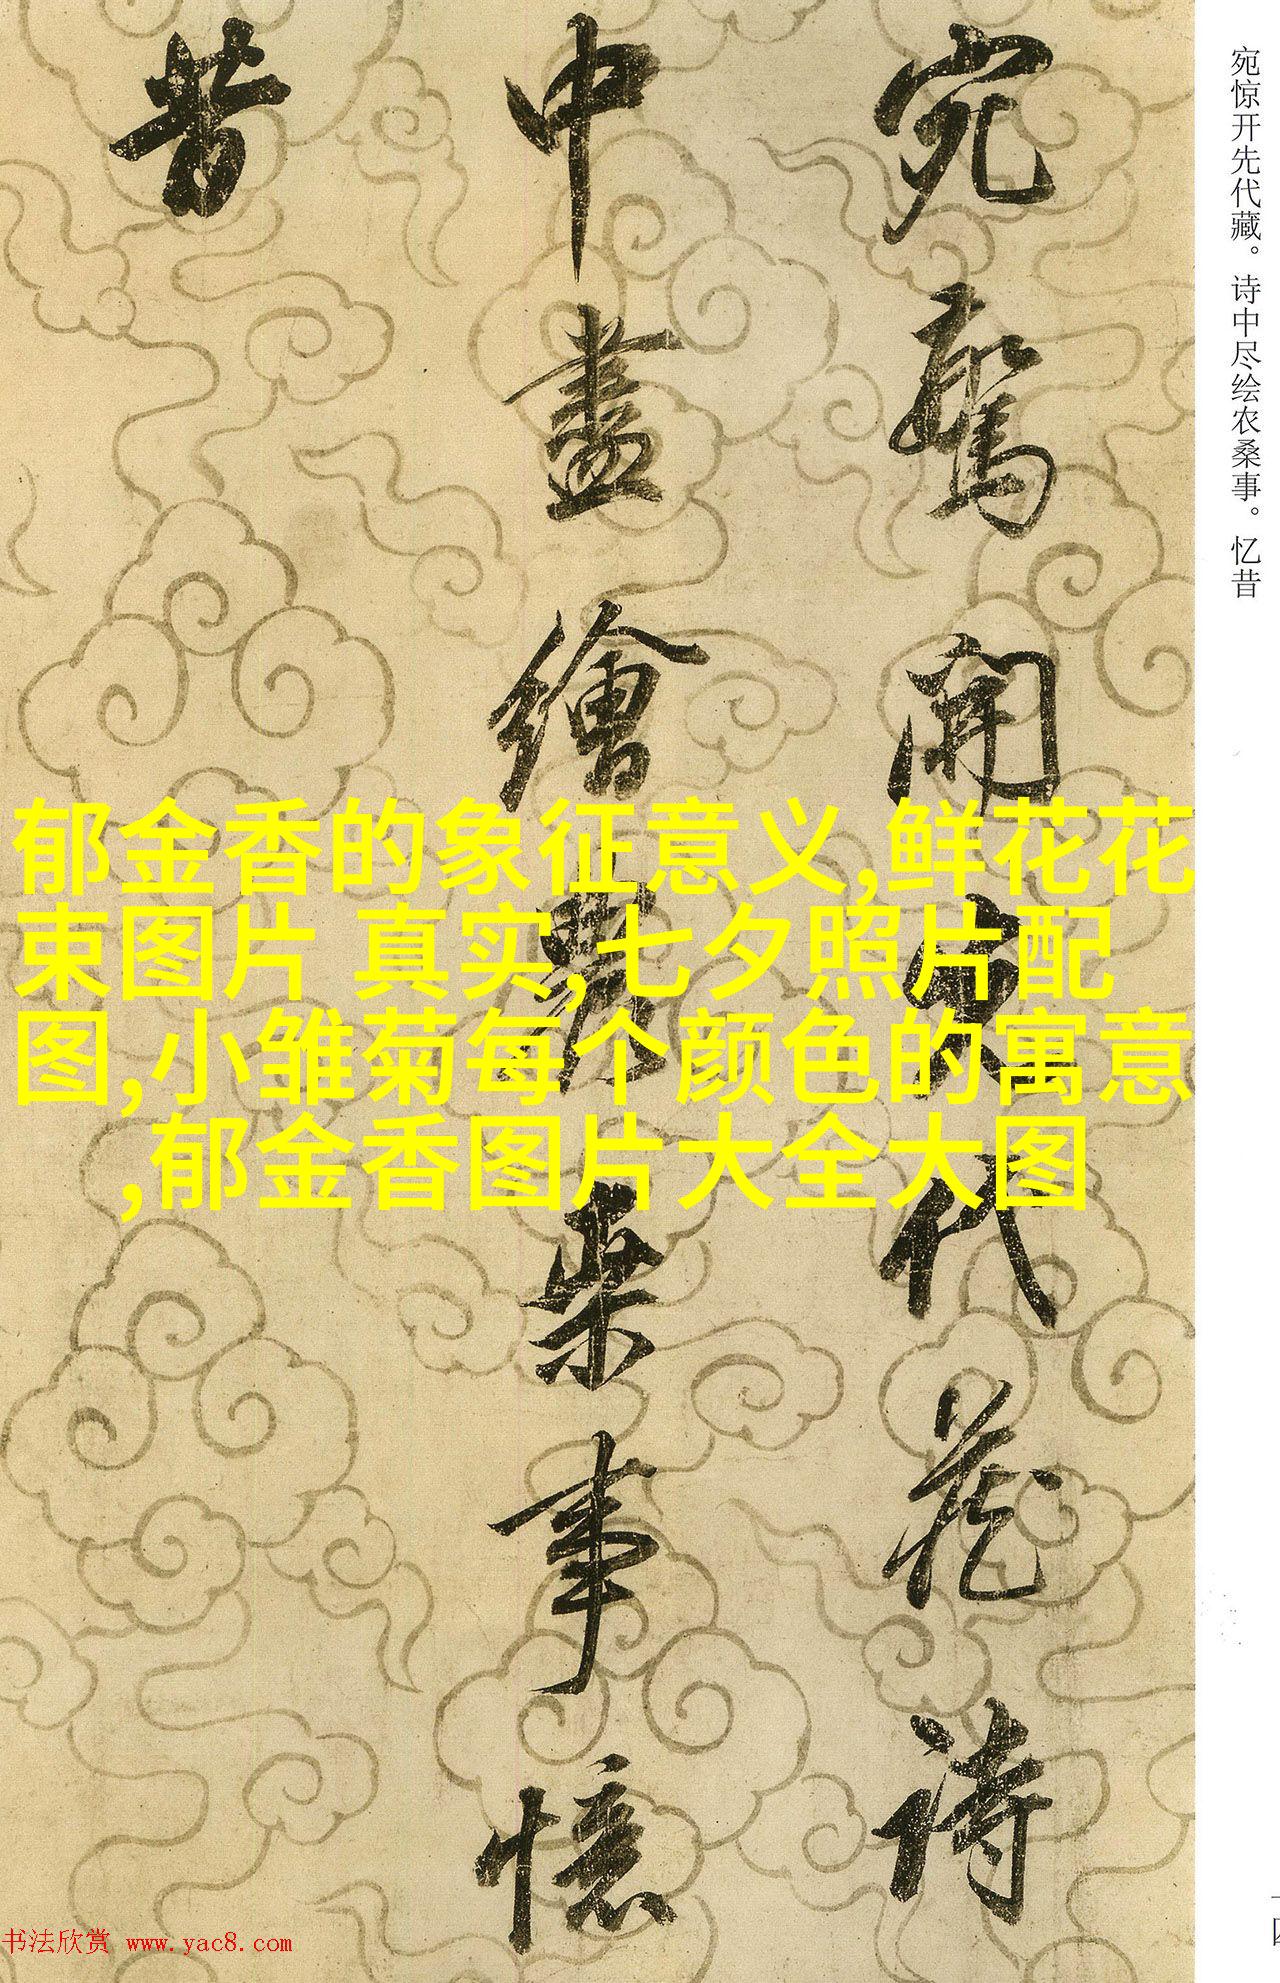 宛驚開先代藏詩
中盡繪農桑事憶
昔
宛惊开先代藏。诗中尽绘农桑事。忆昔
郁金香的象征意义,鲜花花
束图片 真实,七夕照片配
图,小雏菊每个颜色的寓意
,郁金香图片大全大图
书法欣赏 www.yac8.com